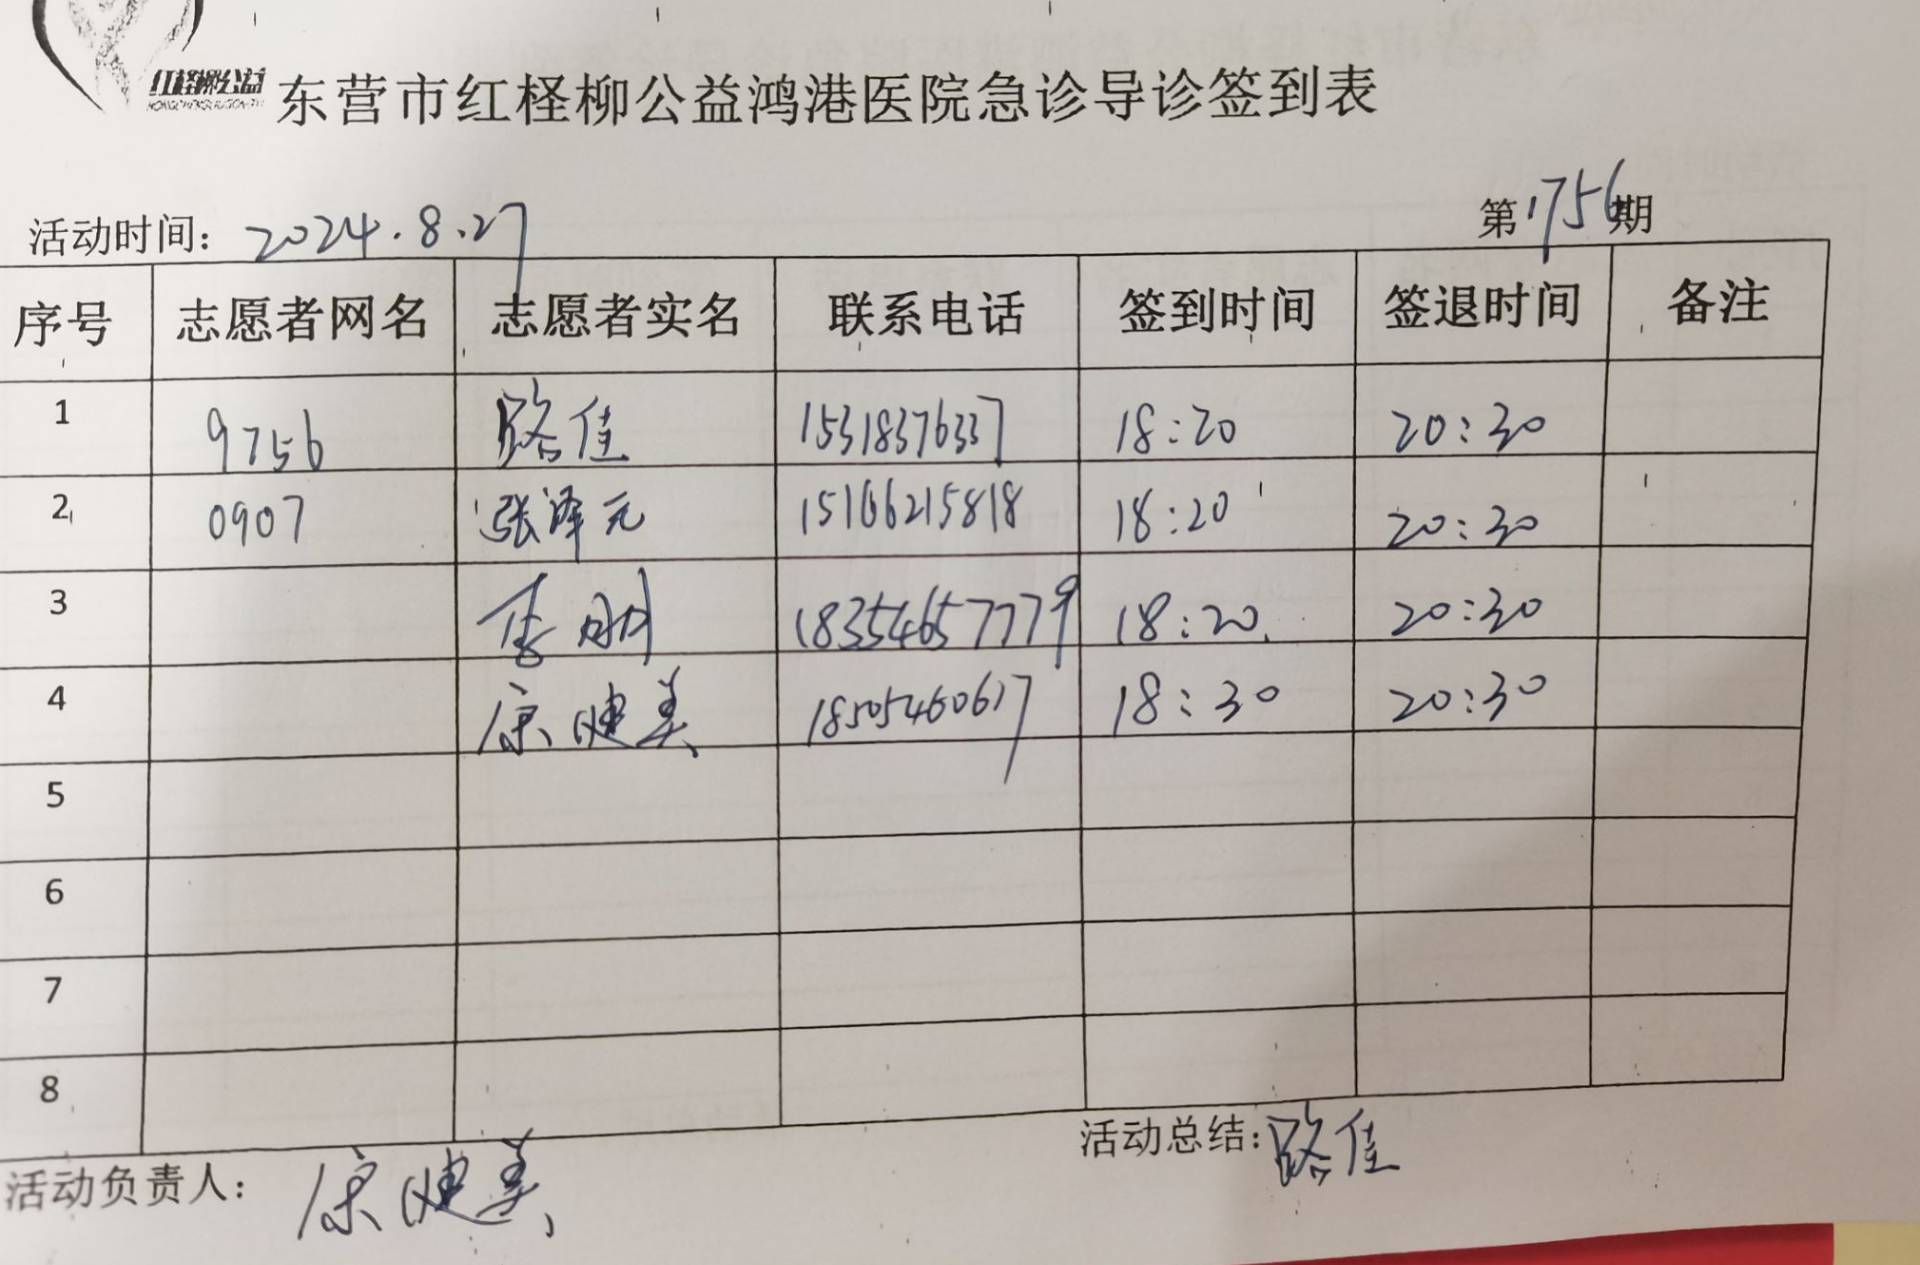 红柽柳公益
东营市红柽柳公益鸿港医院急诊导诊签到表
活动时间：2024.8.27 第1756期
序号 志愿者网名 志愿者实名 联系电话 签到时间 签退时间 备注
1 9756 路佳 15318376337 18:20 20:30
2 0907 张泽元 15166215818 18:20 20:30
3 李刚 18354657779 18:20 20:30
4 康健美 18505460617 18:30 20:30
5
6
7
8
活动总结：路佳
活动负责人：康健美